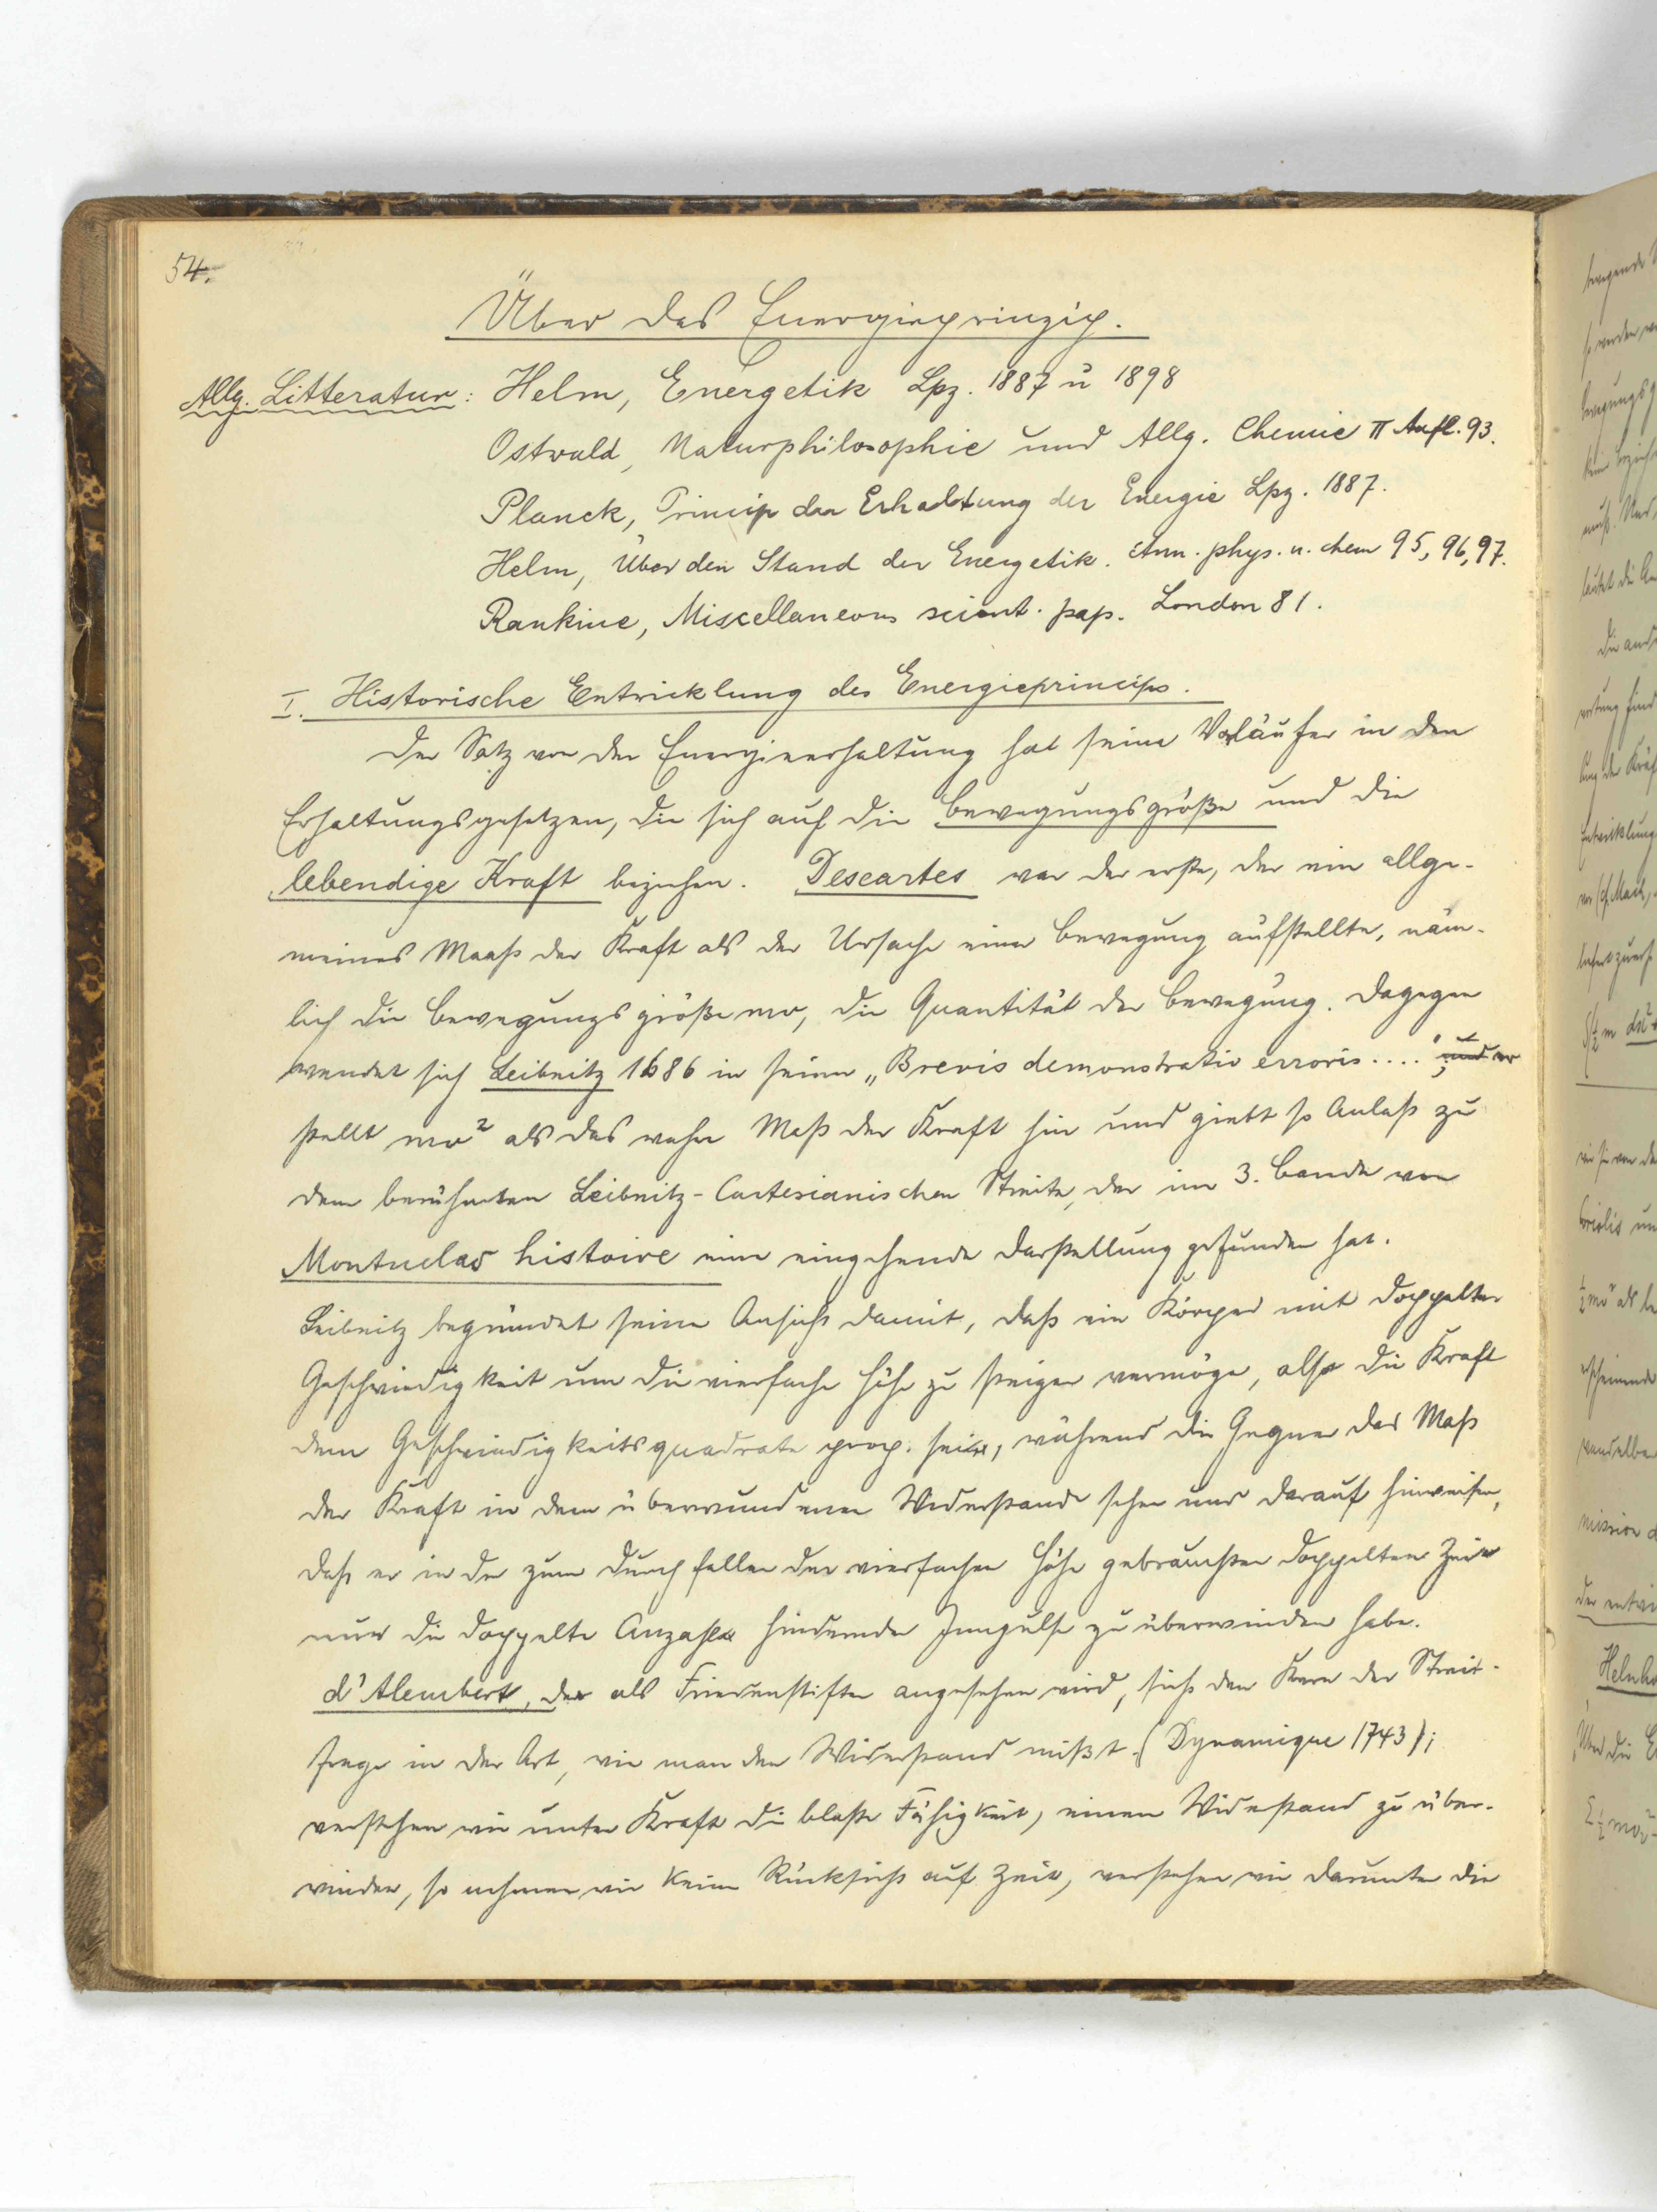 54.
Über das Energieprinzip.
Allg. Litteratur: Helm, Energetik Lpz. 1887 u 1898
Ostwald, Naturphilosophie und Allg. Chemie II Aufl. 93.
Planck, Princip der Erhaltung der Energie Lpz. 1887.
Helm, Über den Stand der Energetik. Ann. phys. u. chem 95, 96, 97.
Rankine, Miscellaneous scient. pap. London 81.
I. Historische Entwicklung des Energieprincips.
Der Satz von der Energieerhaltung hat seine Vorläufer in den
Erhaltungsgesetzen, die sich auf die Bewegungsgröße und die
lebendige Kraft beziehen. Descartes war der erste, der ein allge-
meines Maaß der Kraft als der Ursache einer Bewegung aufstellte, näm-
lich die Bewegungsgröße mv, die Quantität der Bewegung. Dagegen
wendet sich Leibnitz 1686 in seiner „Brevis demonstratio erroris....", und er
stellt mv² als das wahre Maß der Kraft hin und giebt so Anlaß zu
dem berühmten Leibnitz-Cartesianischen Streite, der im 3. Bande von
Montuclas histoire eine eingehende Darstellung gefunden hat.
Leibnitz begründet seine Ansicht damit, daß ein Körper mit doppelter
Geschwindigkeit um die vierfache Höhe zu steigen vermöge, also die Kraft
dem Geschwindigkeitsquadrate prop. sei, während die Gegner das Maß
der Kraft in dem überwundenen Widerstande sehen und darauf hinweisen,
daß er in der zum Durchfallen der vierfachen Höhe gebrauchten doppelten Zeit
nur die doppelte Anzahl hindernder Impulse zu überwinden habe.
d'Alembert, der als Friedensstifter angesehen wird, sieht den Kern der Streit-
frage in der Art, wie man den Widerstand mißt (Dynamique 1743);
verstehen wir unter Kraft die bloße Fähigkeit, einen Widerstand zu über-
winden, so nehmen wir keine Rücksicht auf Zeit, verstehen wir darunter die